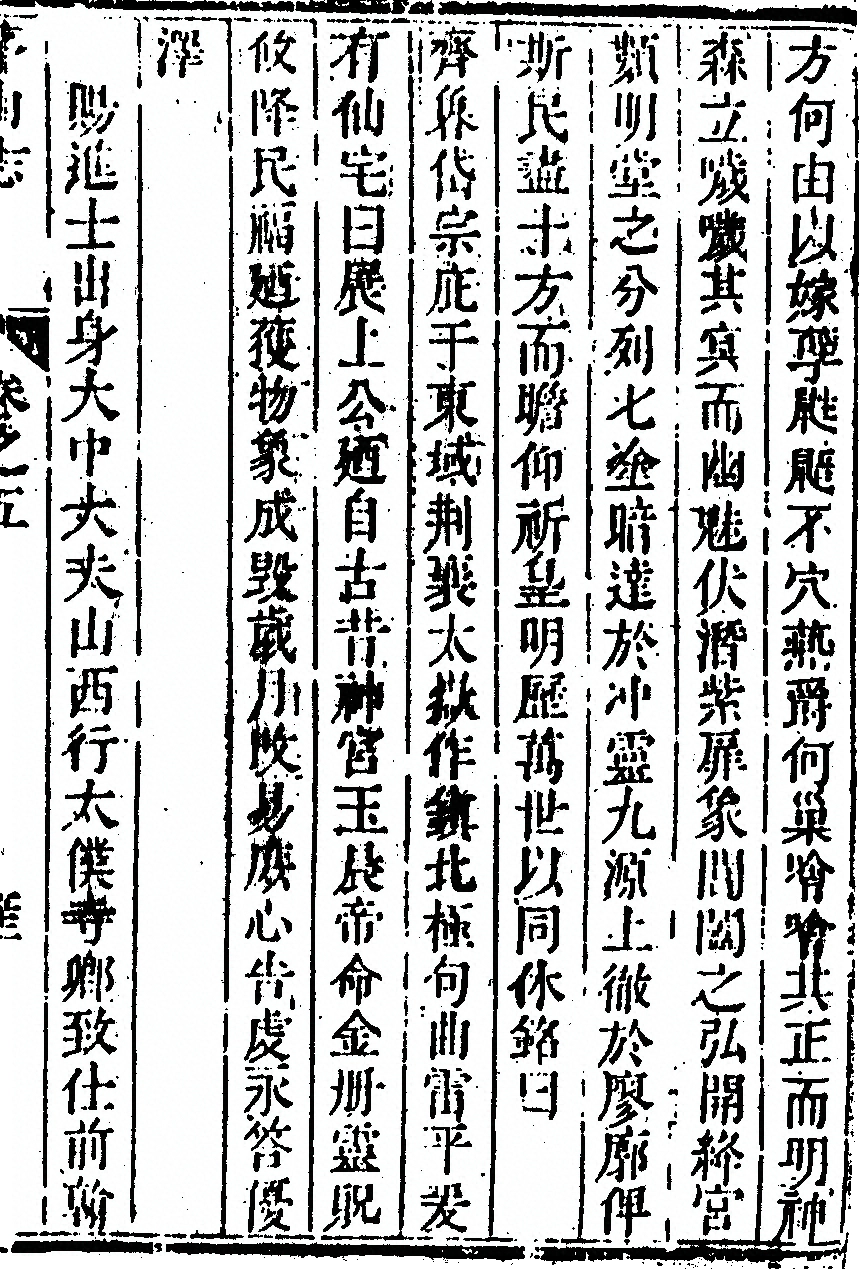 方何由以嫁孽鼪鼯不穴蓺爵何巢噲噲其正而明神
森立噦噦其冥而幽魅伏潛紫扉象閶闔之弘開絳宮
類明堂之分列七塗暗達於冲靈九源上徹於廖廓俾
斯民盡十方而瞻仰祈皇明歷萬世以同休銘曰
齊縣岱宗庇于東域荆襄太嶽作鎮北極句曲雷平爰
有仙宅曰展上公廼自古昔神宮玉晨帝命金册靈貺
攸降民福廼獲物象成毀歲月改易賡心告虔永答優
澤
賜進士出身大中大夫山西行太僕寺卿致仕前翰
茅山志
卷之五